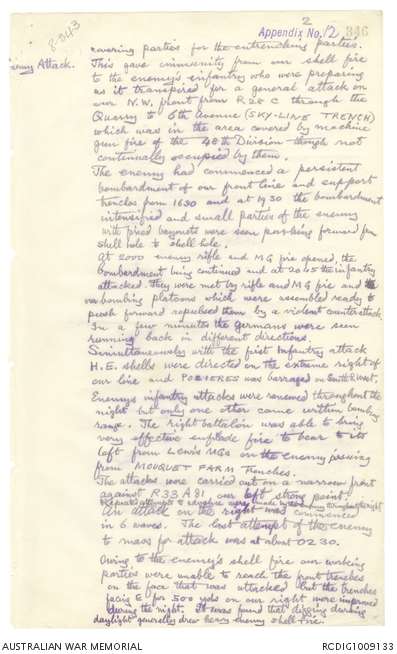 2
Appendix No. 12 346
8-943
covering parties for the entrenching parties.
Enemy Attack. This gave immunity from our shell fire
to the enemy's infantry who were preparing
as it transpired for a general attack on
our N.W. front from R28C through the
Quarry to 6th Avenue (SKY-LINE TRENCH)
which was in the area covered by machine
gun fire of the 48th Division though not
continually occupied by them.
The enemy had commenced a persistent
bombardment of our front line and support
trenches from 1630 and at 1930 the bombardment
intensified and small parties of the enemy
with fixed bayonets were seen pushing forward from
shell hole to shell hole.
At 2000 enemy rifle and MG fire opened, the
bombardment being continued and at 2015 the infantry
attacked. They were met by rifle and MG fire and the
bombing platoons which were assembled ready to
push forward repulsed them by a violent counterattack
In a few minutes the Germans were seen
running back in different directions.
Simultaneously with the first Infantry attack
H.E. shells were directed on the extreme right of
our line and POZIERES was barraged on South & West.
Enemy's infantry attacks were renewed throughout the
night but only one other came within bombing
range. The right battalion was able to bring
very effective enfilade fire to bear to its
left from Lewis MGs on the enemy pressing
from MOUQUET FARM trenches.
The attacks were carried out on a narrow front
against R33A91 our left strong point.
Repeated attempts to advance were made by
An attack on the right was commenced
in 6 waves. The last attempt of the enemy
to mass for attack was at about 0230.
Owing to the enemy's shell fire our working
parties were unable to reach the front trenches
on the face that was attacked but the trenches
facing E for 500 yds on our right were improved
during the night. It was found that digging during
daylight generally drew heavy enemy shell fire.
AUSTRALIAN WAR MEMORIAL
RCDIG1009133